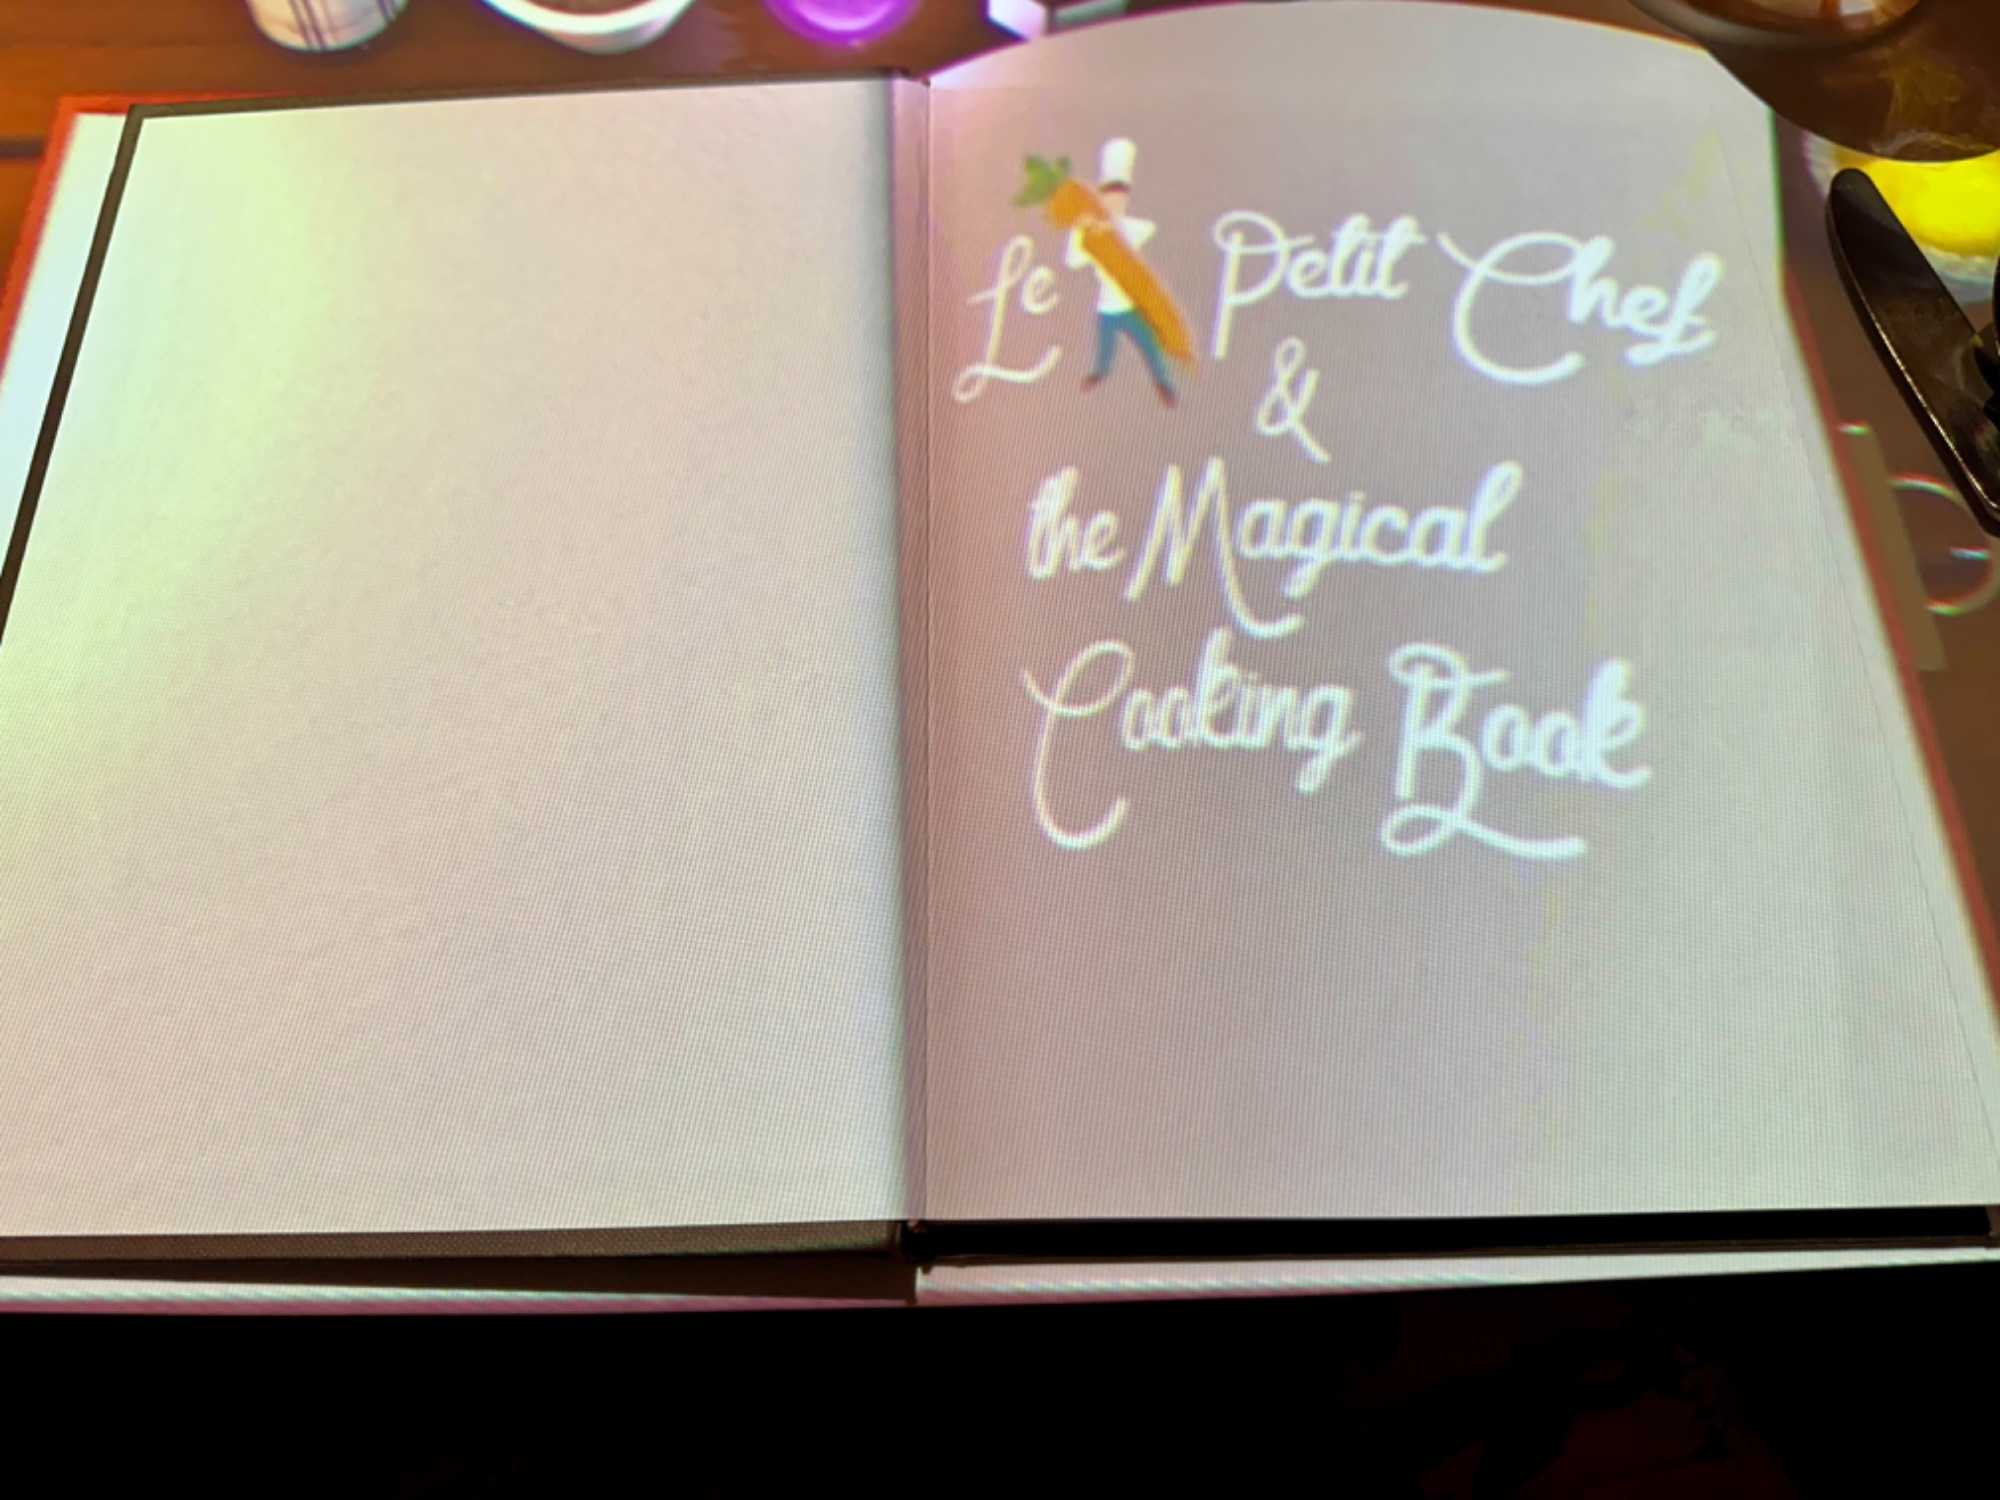 Le Petit Chef
&
the Magical
Cooking Book